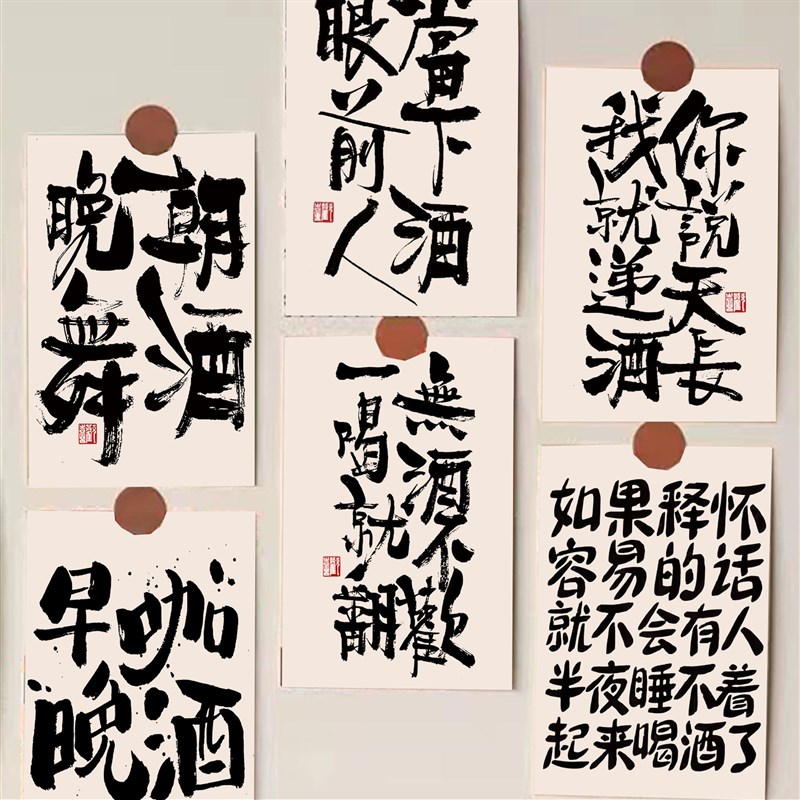 朝酒
晚舞
當下酒
眼前人
你說天長
我就递酒
無酒不歡
一喝就翻
早咖
晚酒
如果释怀
容易的话
就不会有人
半夜睡不着
起来喝酒了